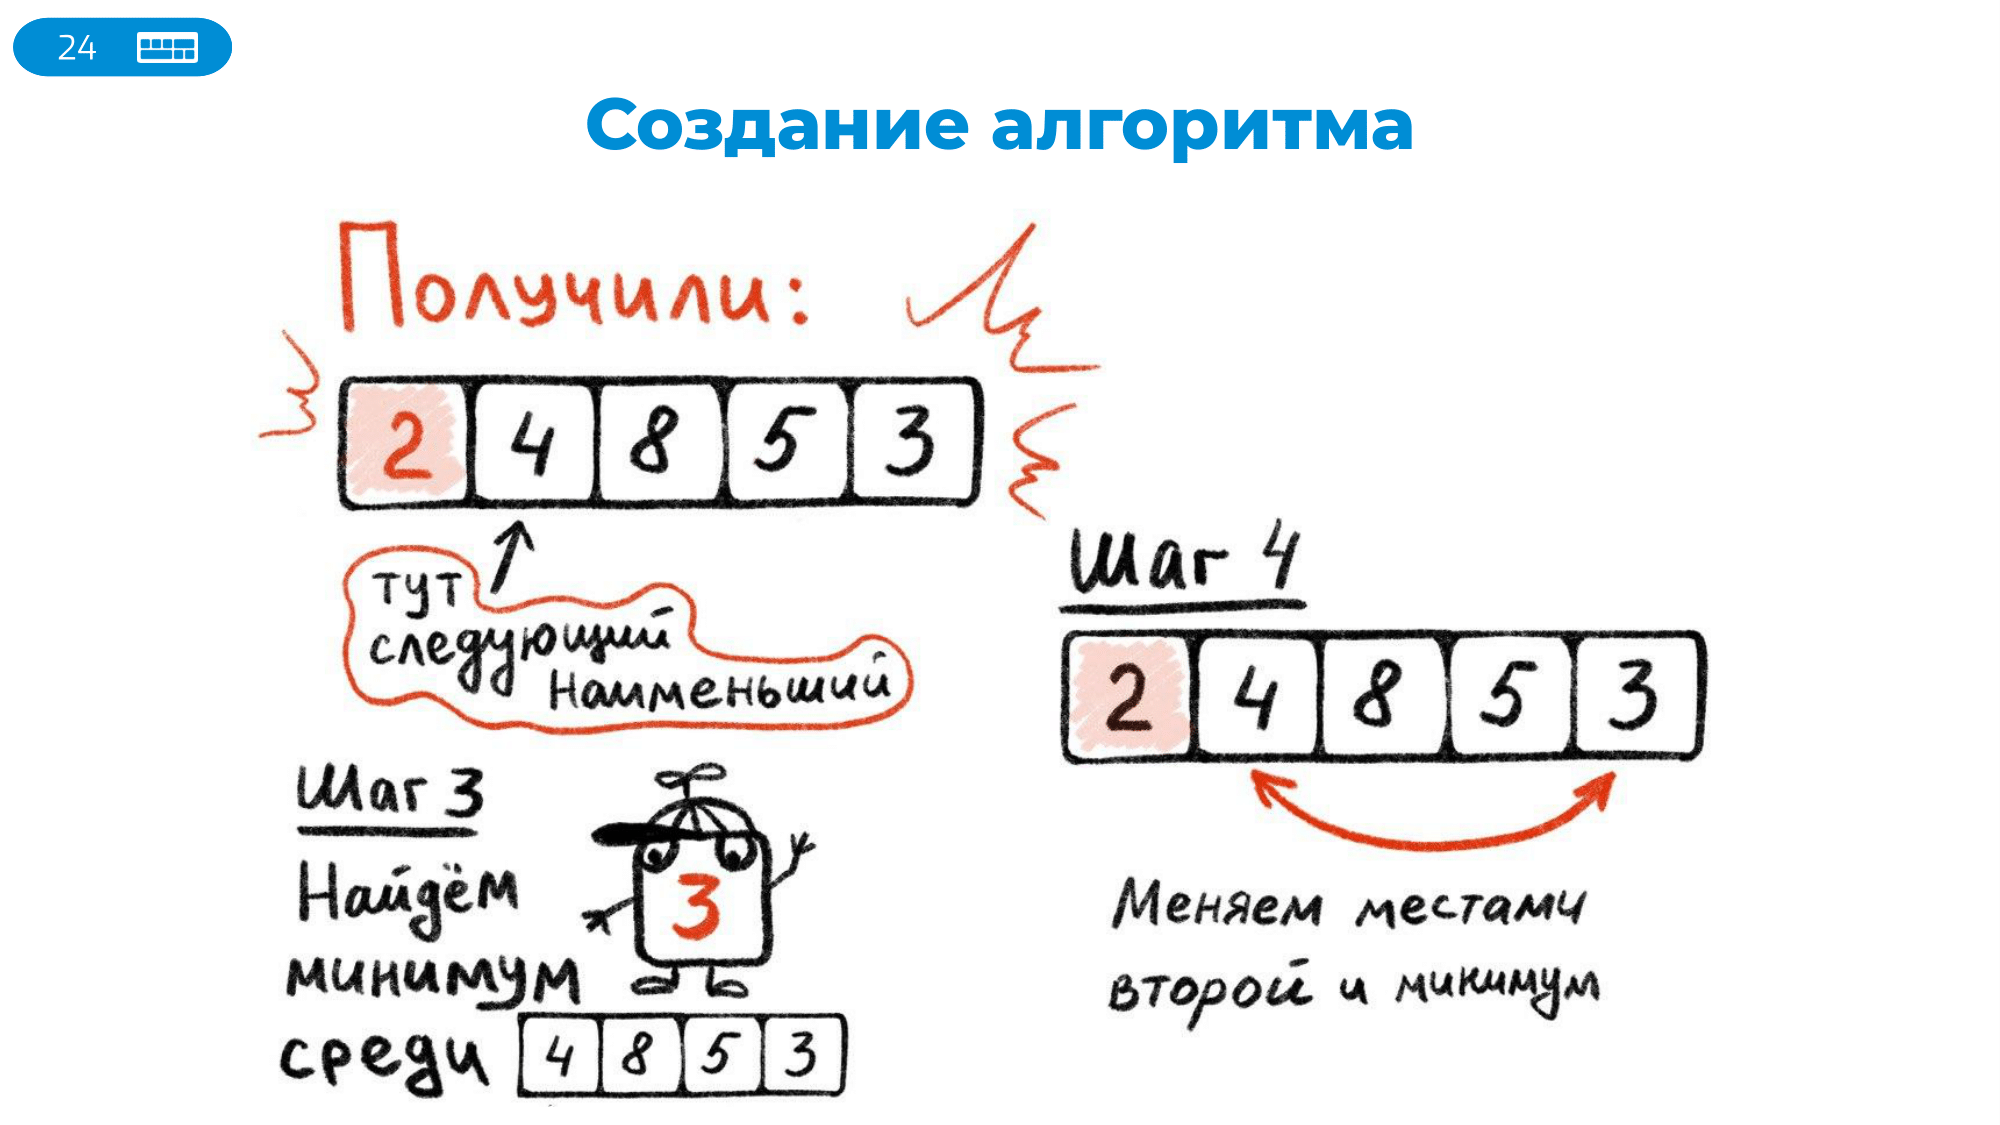 24
Создание алгоритма
Получили:
2 4 8 5 3
тут
следующий
наименьший
Шаг 3
Найдём
минимум
3
среди 4 8 5 3
Шаг 4
2 4 8 5 3
Меняем местами
второй и минимум